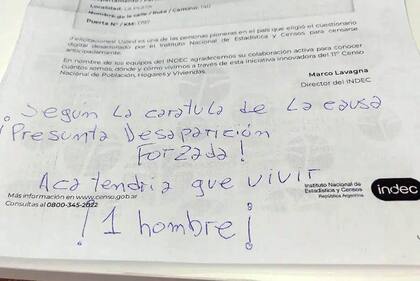 LA PLATA
Nombre de la calle / Ruta / Camino: 140
Puerta N° / KM: 1767
¡Felicitaciones! Usted es una de las personas pioneras en el país que eligió el cuestionario
digital desarrollado por el Instituto Nacional de Estadística y Censos para censarse
anticipadamente.
En nombre de los equipos del INDEC agradecemos su colaboración activa para conocer
cuántos somos, dónde y cómo vivimos a través de esta iniciativa innovadora del 11° Censo
Nacional de Población, Hogares y Viviendas.
Marco Lavagna
Director del INDEC
Segun La caratula de La causa
¡Presunta Desaparición
Forzada!
Aca tendria que vivir
Más información en www.censo.gob.ar
Consultas al 0800-345-2022
Instituto Nacional de
Estadística y Censos
República Argentina
indec
¡1 hombre!